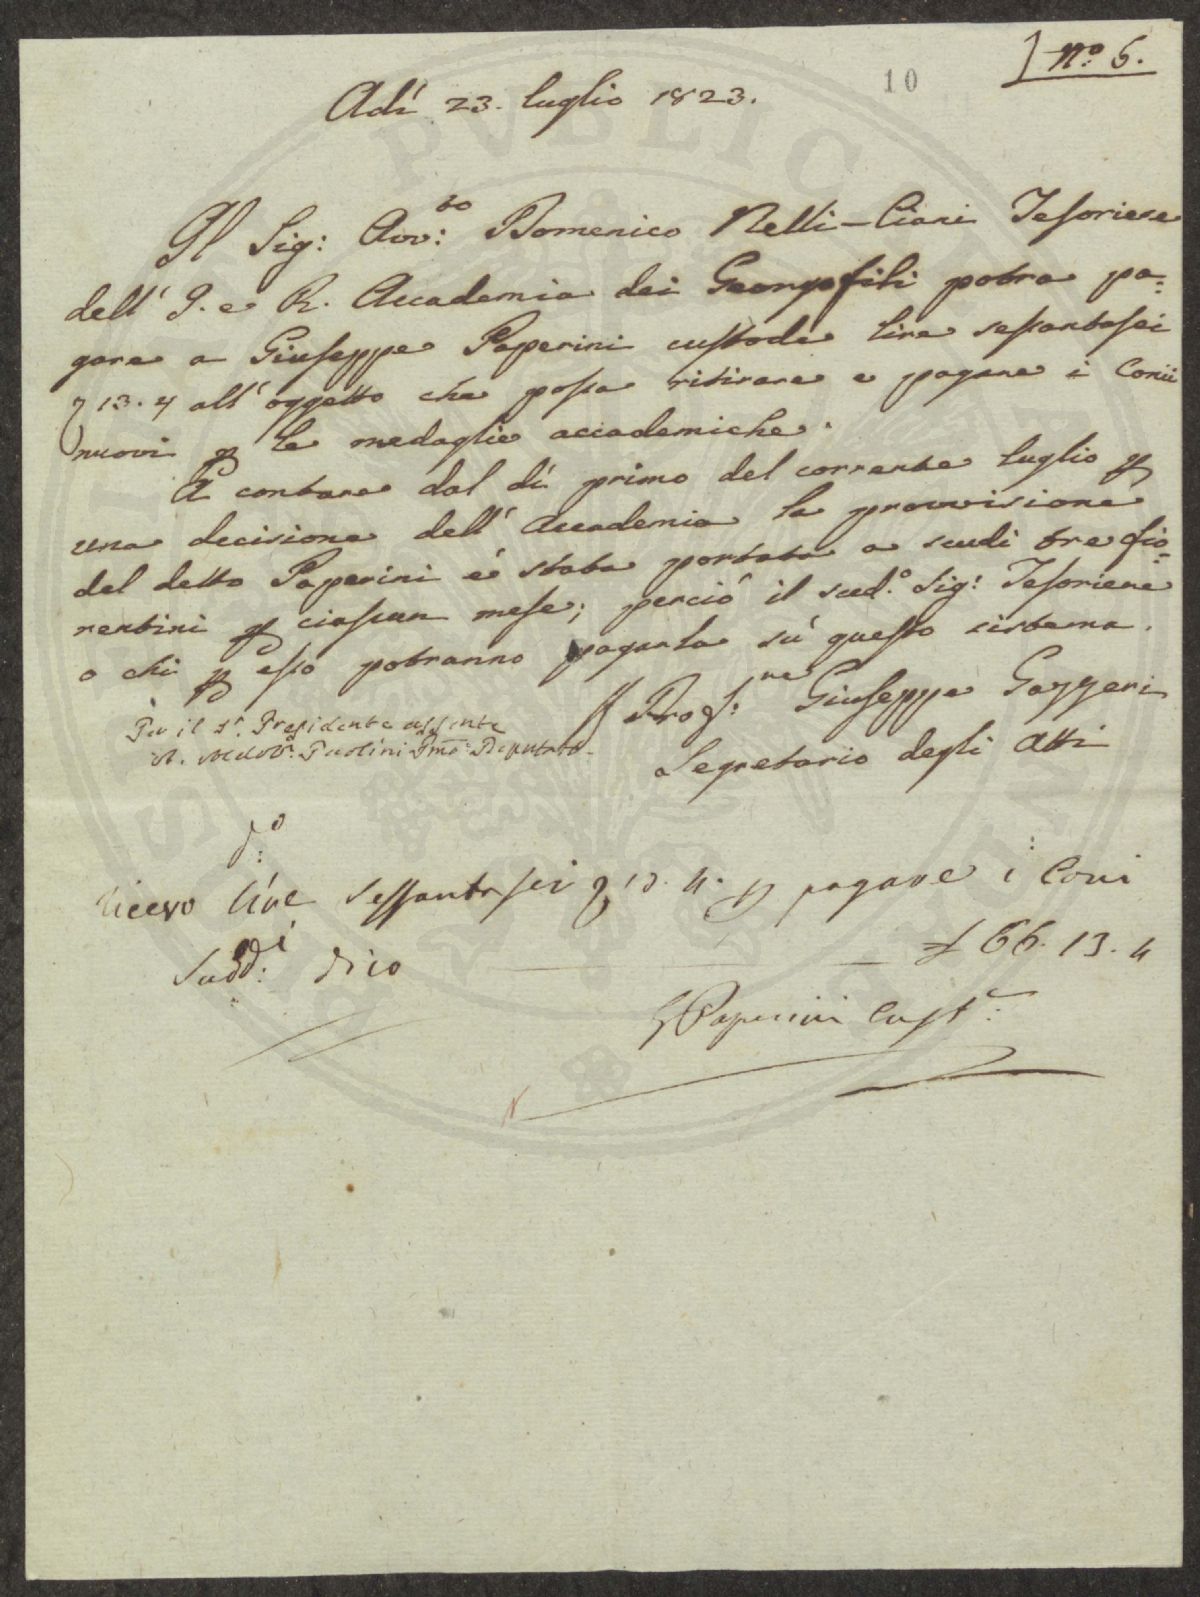 10
N.º 6.
Adí 23. luglio 1823.
Il Sig: Avv:to Domenico Nelli-Ciani Tesoriere
dell' I. e R. Accademia dei Georgofili potra pa=
gare a Giuseppe Paperini custode lire sessantasei
13. 4 all' oggetto che possa ritirare e pagare i Conii
nuovi p le medaglie accademiche.
A contare dal dí primo del corrente luglio p
una decisione dell' Accademia la provvisione
del detto Paperini é stata portata a scudi tre fio=
rentini p ciascun mese; perció il sud.º Sig: Tesoriere
o chi p esso potranno pagarla sú questo sistema.
Prof:re Giuseppe Gazzeri
Segretario degli Atti
Per il Sr. Presidente assente
Paolini Pmo: Deputato
dº:
Ricevo Lire Sessanta sei 13. 4. p pagare i Coni
Sudd:i dico £ 66. 13. 4
G Paperini Cust:e